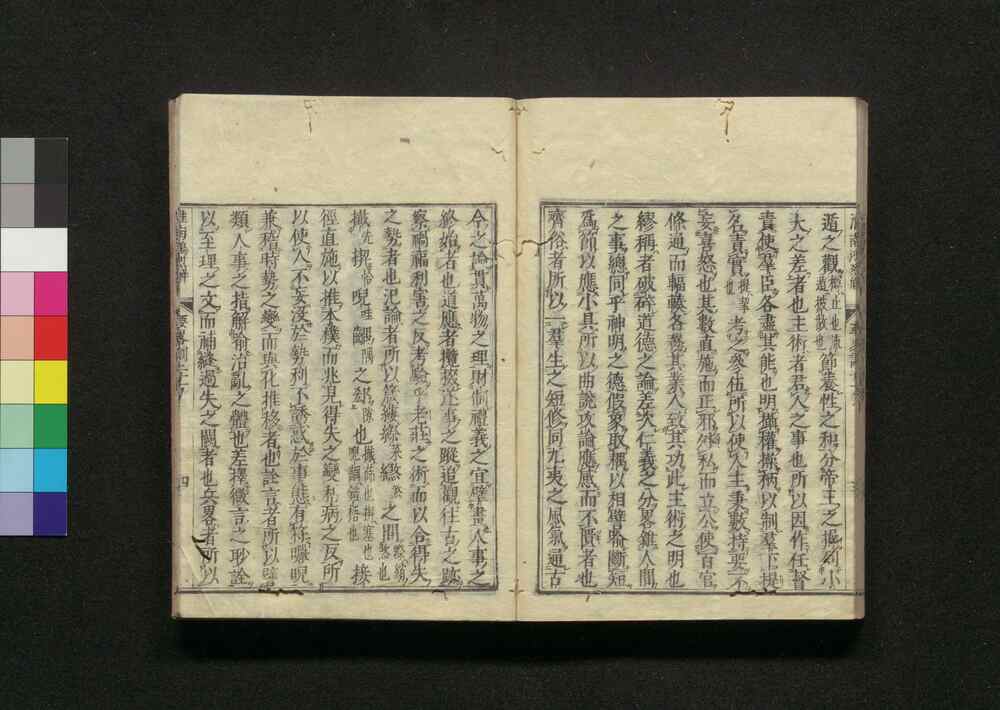 遁之觀節養性之和分帝王之操列小
大之差者也主術者君人之事也所以因作任督
責使羣臣各盡其能也明攝權操柄以制羣下提
名責實考之參伍所以使人主秉數持要不
妄喜怒也其數直施而正邪外私而立公使百官
條通而輻輳各務其業人致其功此主術之明也
繆稱者破碎道德之論差次仁義之分畧雜人間
之事總同乎神明之德假象取耦以相譬喻斷短
爲節以應小具所以曲說攻論應感而不匱者也
齊俗者所以一羣生之短修同九夷之風氣通古
今之論貫萬物之理財制禮義之宜擘畫人事之
終始者也道應者攬掇遂事之蹤追觀往古之跡
察禍福利害之反考驗乎老莊之術而以合得失
之勢者也氾論者所以箴縷縩之間
攕揳唲齵之郄也接
徑直施以推本樸而兆見得失之變利病之反所
以使人不妄沒於勢利不誘惑於事態有符曮晲
兼稽時勢之變而與化推移者也詮言者所以譬
類人事之指解喻治亂之體也差擇微言之眇詮
以至理之文而補縫過失之闕者也兵畧者所以
要畧訓
四